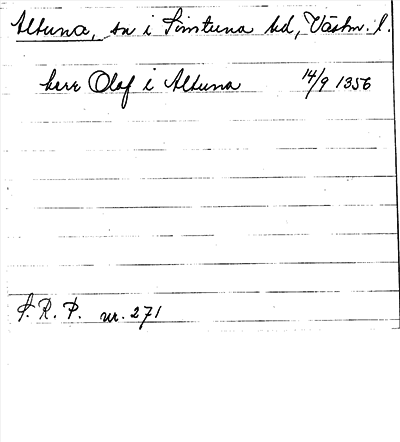 Altuna, sn i Simtuna hd, Västm. l.
herr Olof i Altuna 14/9 1356
S. R. P. nr. 271